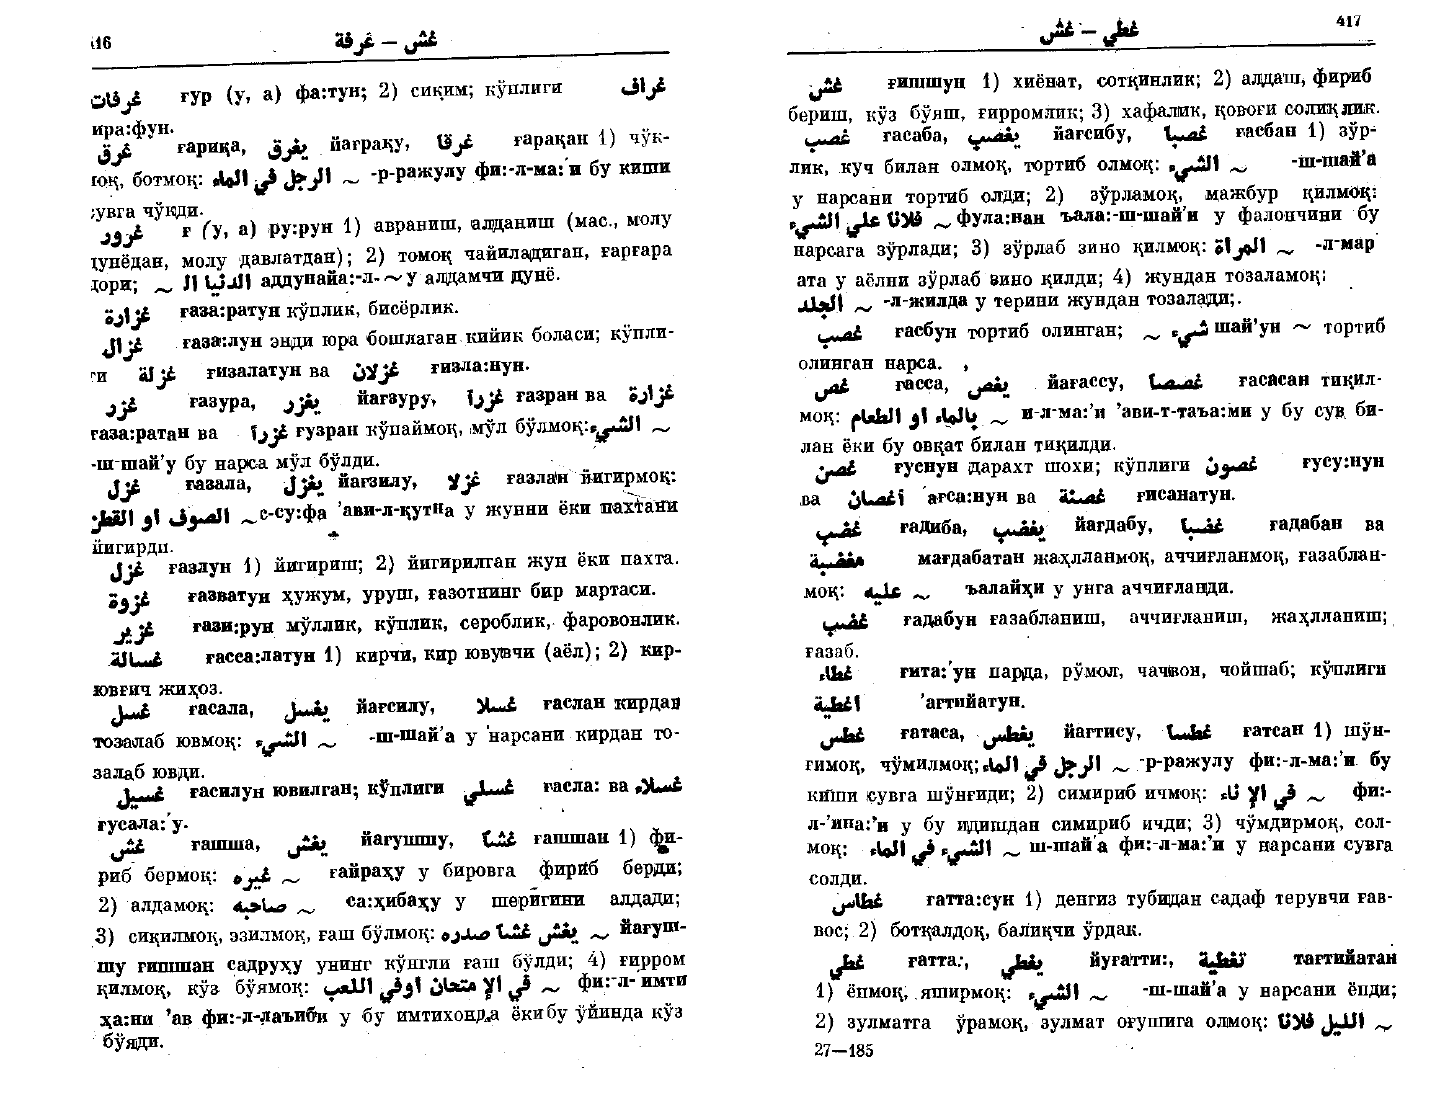 416
غش — غرفة
غرفات ғур (у, а) фа:тун; 2) сиқим; кўплиги غراف
ира:фун.
غرق ғариқа, يغرق йағрақу, غرقا ғарақан 1) чўк-
моқ, ботмоқ: الرجل في الماء ~ -р-ражулу фи:-л-ма:'и бу киши
сувга чўкди.
غرور ғ (у, а) ру:рун 1) авраниш, алданиш (мас., молу
дунёдан, молу давлатдан); 2) томоқ чайиладиган, ғарғара
дори; ~ الدنيا ال аддунайа:-л- ~ у алдамчи дунё.
غزارة ғаза:ратун кўплик, бисёрлик.
غزال ғаза:лун энди юра бошлаган кийик боласи; кўпли-
ги غزلة ғизалатун ва غزلان ғизла:нун.
غزر ғазура, يغزر йағзуру, غزرا ғазран ва غزارة
ғаза:ратан ва غزرا ғузран кўпаймоқ, мўл бўлмоқ: الشيء ~
-ш-шай'у бу нарса мўл бўлди.
غزل ғазала, يغزل йағзилу, غزلا ғазлан йигирмоқ:
الصوف او القطن ~ с-су:фа 'ави-л-қутна у жунни ёки пахтани
йигирди.
غزل ғазлун 1) йигириш; 2) йигирилган жун ёки пахта.
غزوة ғазватун ҳужум, уруш, ғазотнинг бир мартаси.
غزير ғази:рун мўллик, кўплик, сероблик, фаровонлик.
غسالة ғасса:латун 1) кирчи, кир ювувчи (аёл); 2) кир-
ювғич жиҳоз.
غسل ғасала, يغسل йағсилу, غسلا ғаслан кирдан
тозалаб ювмоқ: الشيء ~ -ш-шай'а у нарсани кирдан то-
залаб ювди.
غسيل ғасилун ювилган; кўплиги غسلي ғасла: ва غسلاء
ғусала:'у.
غش ғашша, يغش йағушшу, غشا ғашшан 1) фи-
риб бермоқ: غيره ~ ғайраҳу у бировга фириб берди;
2) алдамоқ: صاحبه ~ са:ҳибаҳу у шеригини алдади;
3) сиқилмоқ, эзилмоқ, ғаш бўлмоқ: يغش غشا صدره ~ йағуш-
шу ғишшан садруҳу унинг кўнгли ғаш бўлди; 4) ғирром
қилмоқ, кўз бўямоқ: في الإ متحان اوفي اللعب ~ фи:-л- имти
ҳа:ни 'ав фи:-л-лаъиби у бу имтихонда ёки бу ўйинда кўз
бўяди.
غطي — غش
417
غش ғишшун 1) хиёнат, сотқинлик; 2) алдаш, фириб
бериш, кўз бўяш, ғирромлик; 3) хафалик, қовоғи солиқлик.
غصب ғасаба, يغصب йағсибу, غصبا ғасбан 1) зўр-
лик, куч билан олмоқ, тортиб олмоқ: الشيء ~ -ш-шай'а
у нарсани тортиб олди; 2) зўрламоқ, мажбур қилмоқ:
فلانا علي الشيء ~ фула:нан ъала:-ш-шай'и у фалончини бу
нарсага зўрлади; 3) зўрлаб зино қилмоқ: المراة ~ -л-мар
ата у аёлни зўрлаб зино қилди; 4) жундан тозаламоқ:
الجلد ~ -л-жилда у терини жундан тозалади;.
غصب ғасбун тортиб олинган; ~ شيء шай'ун ~ тортиб
олинган нарса.
غص ғасса, يغص йағассу, غصصا ғасасан тиқил-
моқ: بالماء او الطعام ~ и-л-ма:'и 'ави-т-таъа:ми у бу сув би-
лан ёки бу овқат билан тиқилди.
غصن ғуснун дарахт шохи; кўплиги غصون ғусу:нун
ва أغصان 'ағса:нун ва غصنة ғисанатун.
غضب ғадиба, يغضب йағдабу, غضبا ғадабан ва
مغضبة мағдабатан жаҳлланмоқ, аччиғланмоқ, ғазаблан-
моқ: عليه ~ ъалайҳи у унга аччиғланди.
غضب ғадабун ғазабланиш, аччиғланиш, жаҳлланиш;
ғазаб.
غطاء ғита:'ун парда, рўмол, чачвон, чойшаб; кўплиги
اغطية 'ағтийатун.
غطس ғатаса, يغطس йағтису, غطسا ғатсан 1) шўн-
ғимоқ, чўмилмоқ; الرجل في الماء ~ -р-ражулу фи:-л-ма:'и бу
киши сувга шўнғиди; 2) симириб ичмоқ: في الإ ناء ~ фи:-
л-'ина:'и у бу идишдан симириб ичди; 3) чўмдирмоқ, сол-
моқ: الشيء في الماء ~ ш-шай'а фи:-л-ма:'и у нарсани сувга
солди.
غطاس ғатта:сун 1) денгиз тубидан садаф терувчи ғав-
вос; 2) ботқалдоқ, балиқчи ўрдак.
غطي ғатта:, يغطي йуғатти:, تغطية тағтийатан
1) ёпмоқ, яширмоқ: الشيء ~ -ш-шай'а у нарсани ёпди;
2) зулматга ўрамоқ, зулмат оғушига олмоқ: الليل فلانا ~
27—185